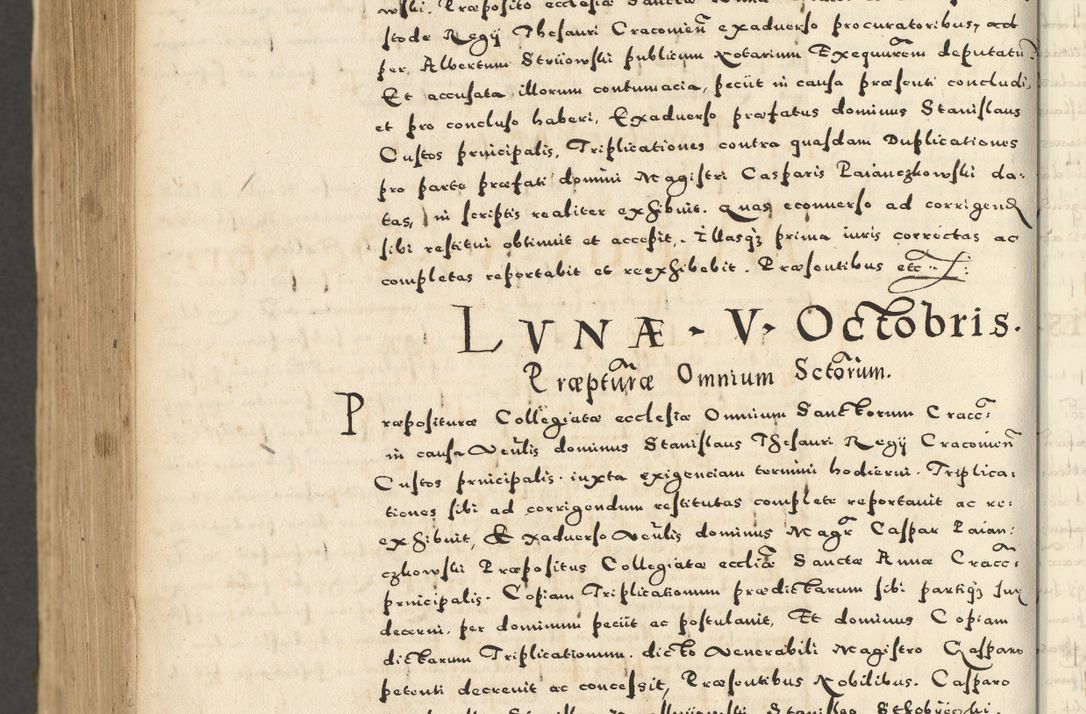 wski. Præposito ecclesiæ Sanctæ Annæ
stode Regÿ Thesauri Craconien̄ exaduerso procuratoribus, act
per Albertum Strÿowski publicum Notarium Exequutem deputatu
Et accusata illorum contumacia, petiit in causa præsenti concludi,
et pro concluso haberi. Exaduerso præfatus dominus Stanislaus
Custos principalis, Triplicationes contra quasdam Duplicationes
pro parte præfati domini Magistri Casparis Paianczkowski da-
tas, in scriptis realiter exhibuit. Quas econuerso ad corrigend
sibi restitui obtinuit et accepit. Illasq̃ prima iuris correctas ac
completas reportabit et reexhibebit. Præsentibus etc
LVNÆ V Octobris.
Præpturæ Omnium Sctorum.
Præposituræ Collegiatæ ecclesiæ Omnium Sanctorum Cracc:
in causa Venlis dominus Stanislaus Thesauri Regÿ Craconien̄
Custos principalis. iuxta exigenciam termini hodierni. Triplica:
tiones sibi ad corrigendum restitutas complete reportauit ac re:
exhibuit, Et exaduerso Venlis dominus Magr Caspar Paian:
czkowski Præpositus Collegiatæ eccliæ Sanctæ Annæ Cracc:
principalis. Copiam Triplicationum prædictarum sibi partiq̃ suæ
decerni. per dominum petiit ac postulauit, Et dominus Copiam
dictarum Triplicationum. dicto Venerabili Magistro Gasparo
petenti decreuit ac concessit, Præsentibus Nobilibus. Casparo